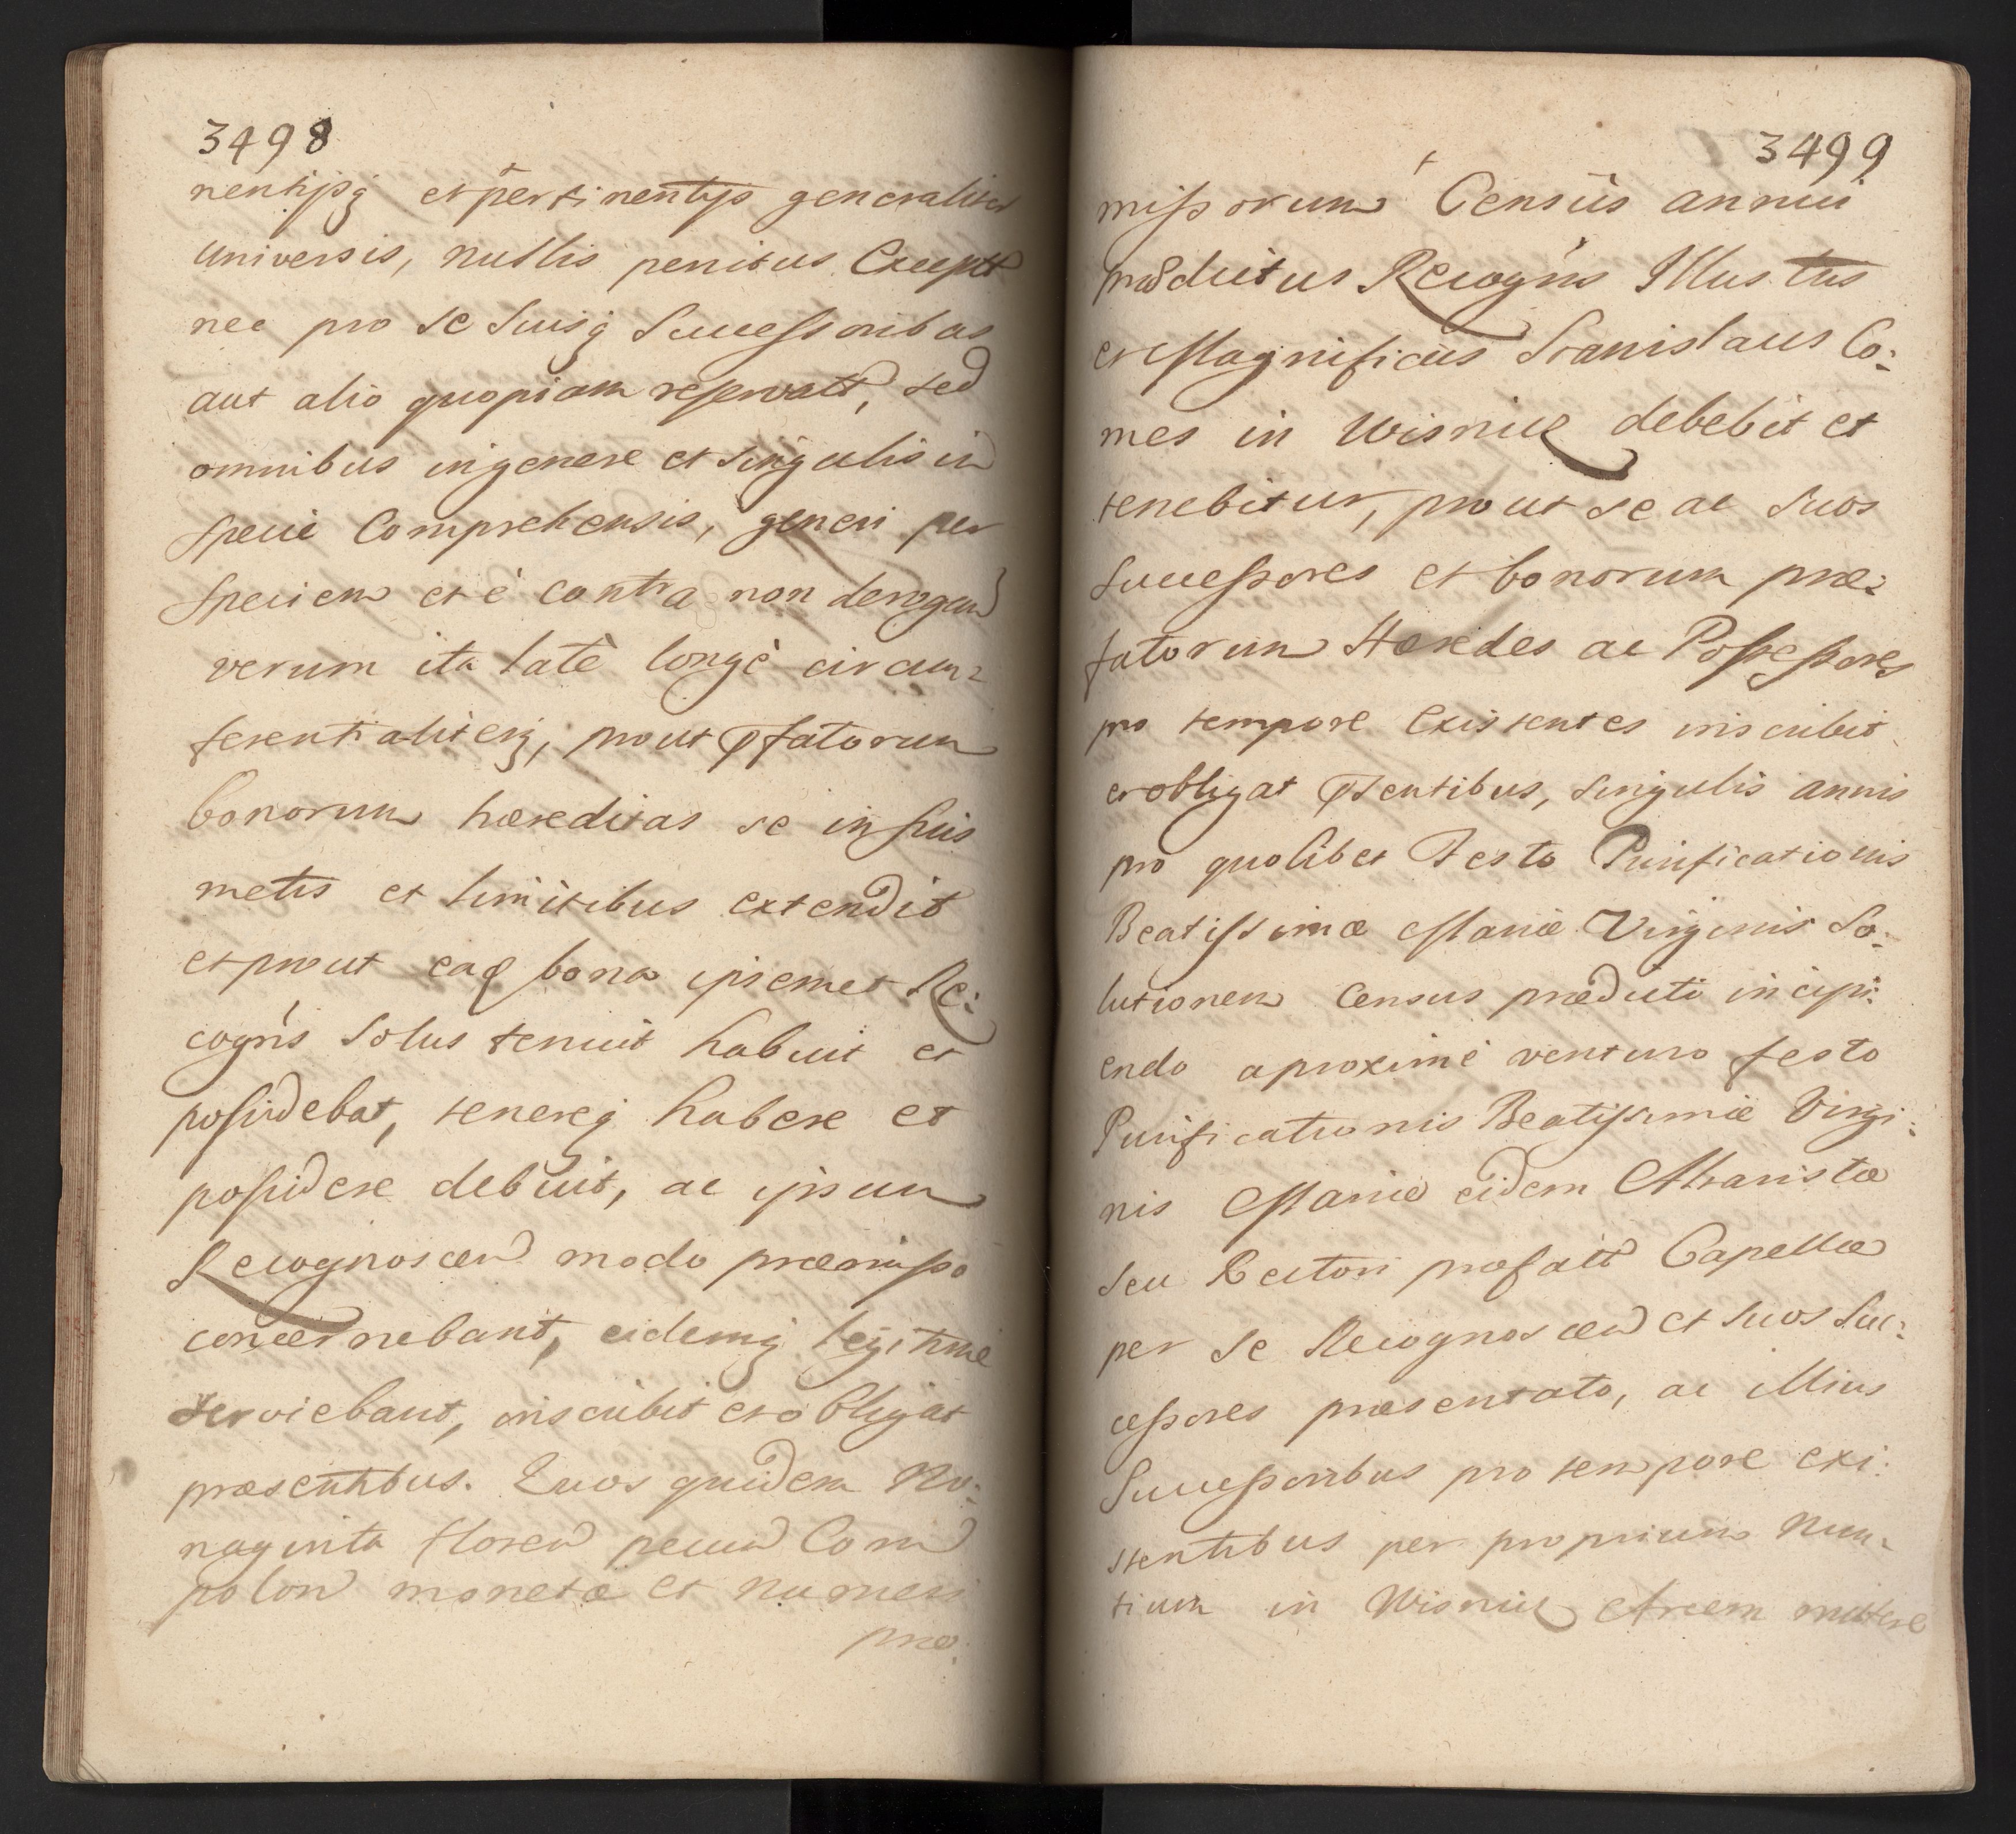 3498
nentijsq et pertinentijs generaliter
universis, nullis penitus Exceptt
nec pro se suisq Successoribus
aut alio quopiam reservatt, sed
omnibus in genere et singulis in
specie Comprehensis, generi per
speciem et è contra non derogan
verum ita latè longè circum=
ferentialiterq, prout pfatorum
bonorum hæreditas se in suis
metis et limitibus extendit
et prout eaq bona ipsemet Re:
cogn's solus tenuit habuit et
possidebat, tenereq habere et
possidere debuit, ac ipsum
Recognoscen modo præmisso
concernebant, eidemq legitime
serviebant, inscribit et obligat
præsentibus. Quos quidem No:
naginta floren pecun Coni
polon monetæ et numeri
præ:
3499
missorum Census annui
prædictus Recogn's Illustris
et Magnificus Stanislaus Co:
mes in Wisnicz debebit et
tenebitur, prout se ac suos
successores et bonorum præ:
fatorum Hæredes ac Possessores
pro tempore existentes inscribit
et obligat psentibus, singulis annis
pro quolibet Festo Purificationis
Beatissimæ Mariæ Virginis So:
lutionem Census prædicti incipi:
endo a proximè venturo festo
Purificationis Beatissimæ Virgi:
nis Mariæ eidem Altaristæ
seu Rectori præfatt Capellæ
per se Recognoscen et suos Suc:
cessores præsentato, ac illius
Successoribus pro tempore exi:
stentibus per proprium Nun:
tium in Wisnicz Arcem mittere